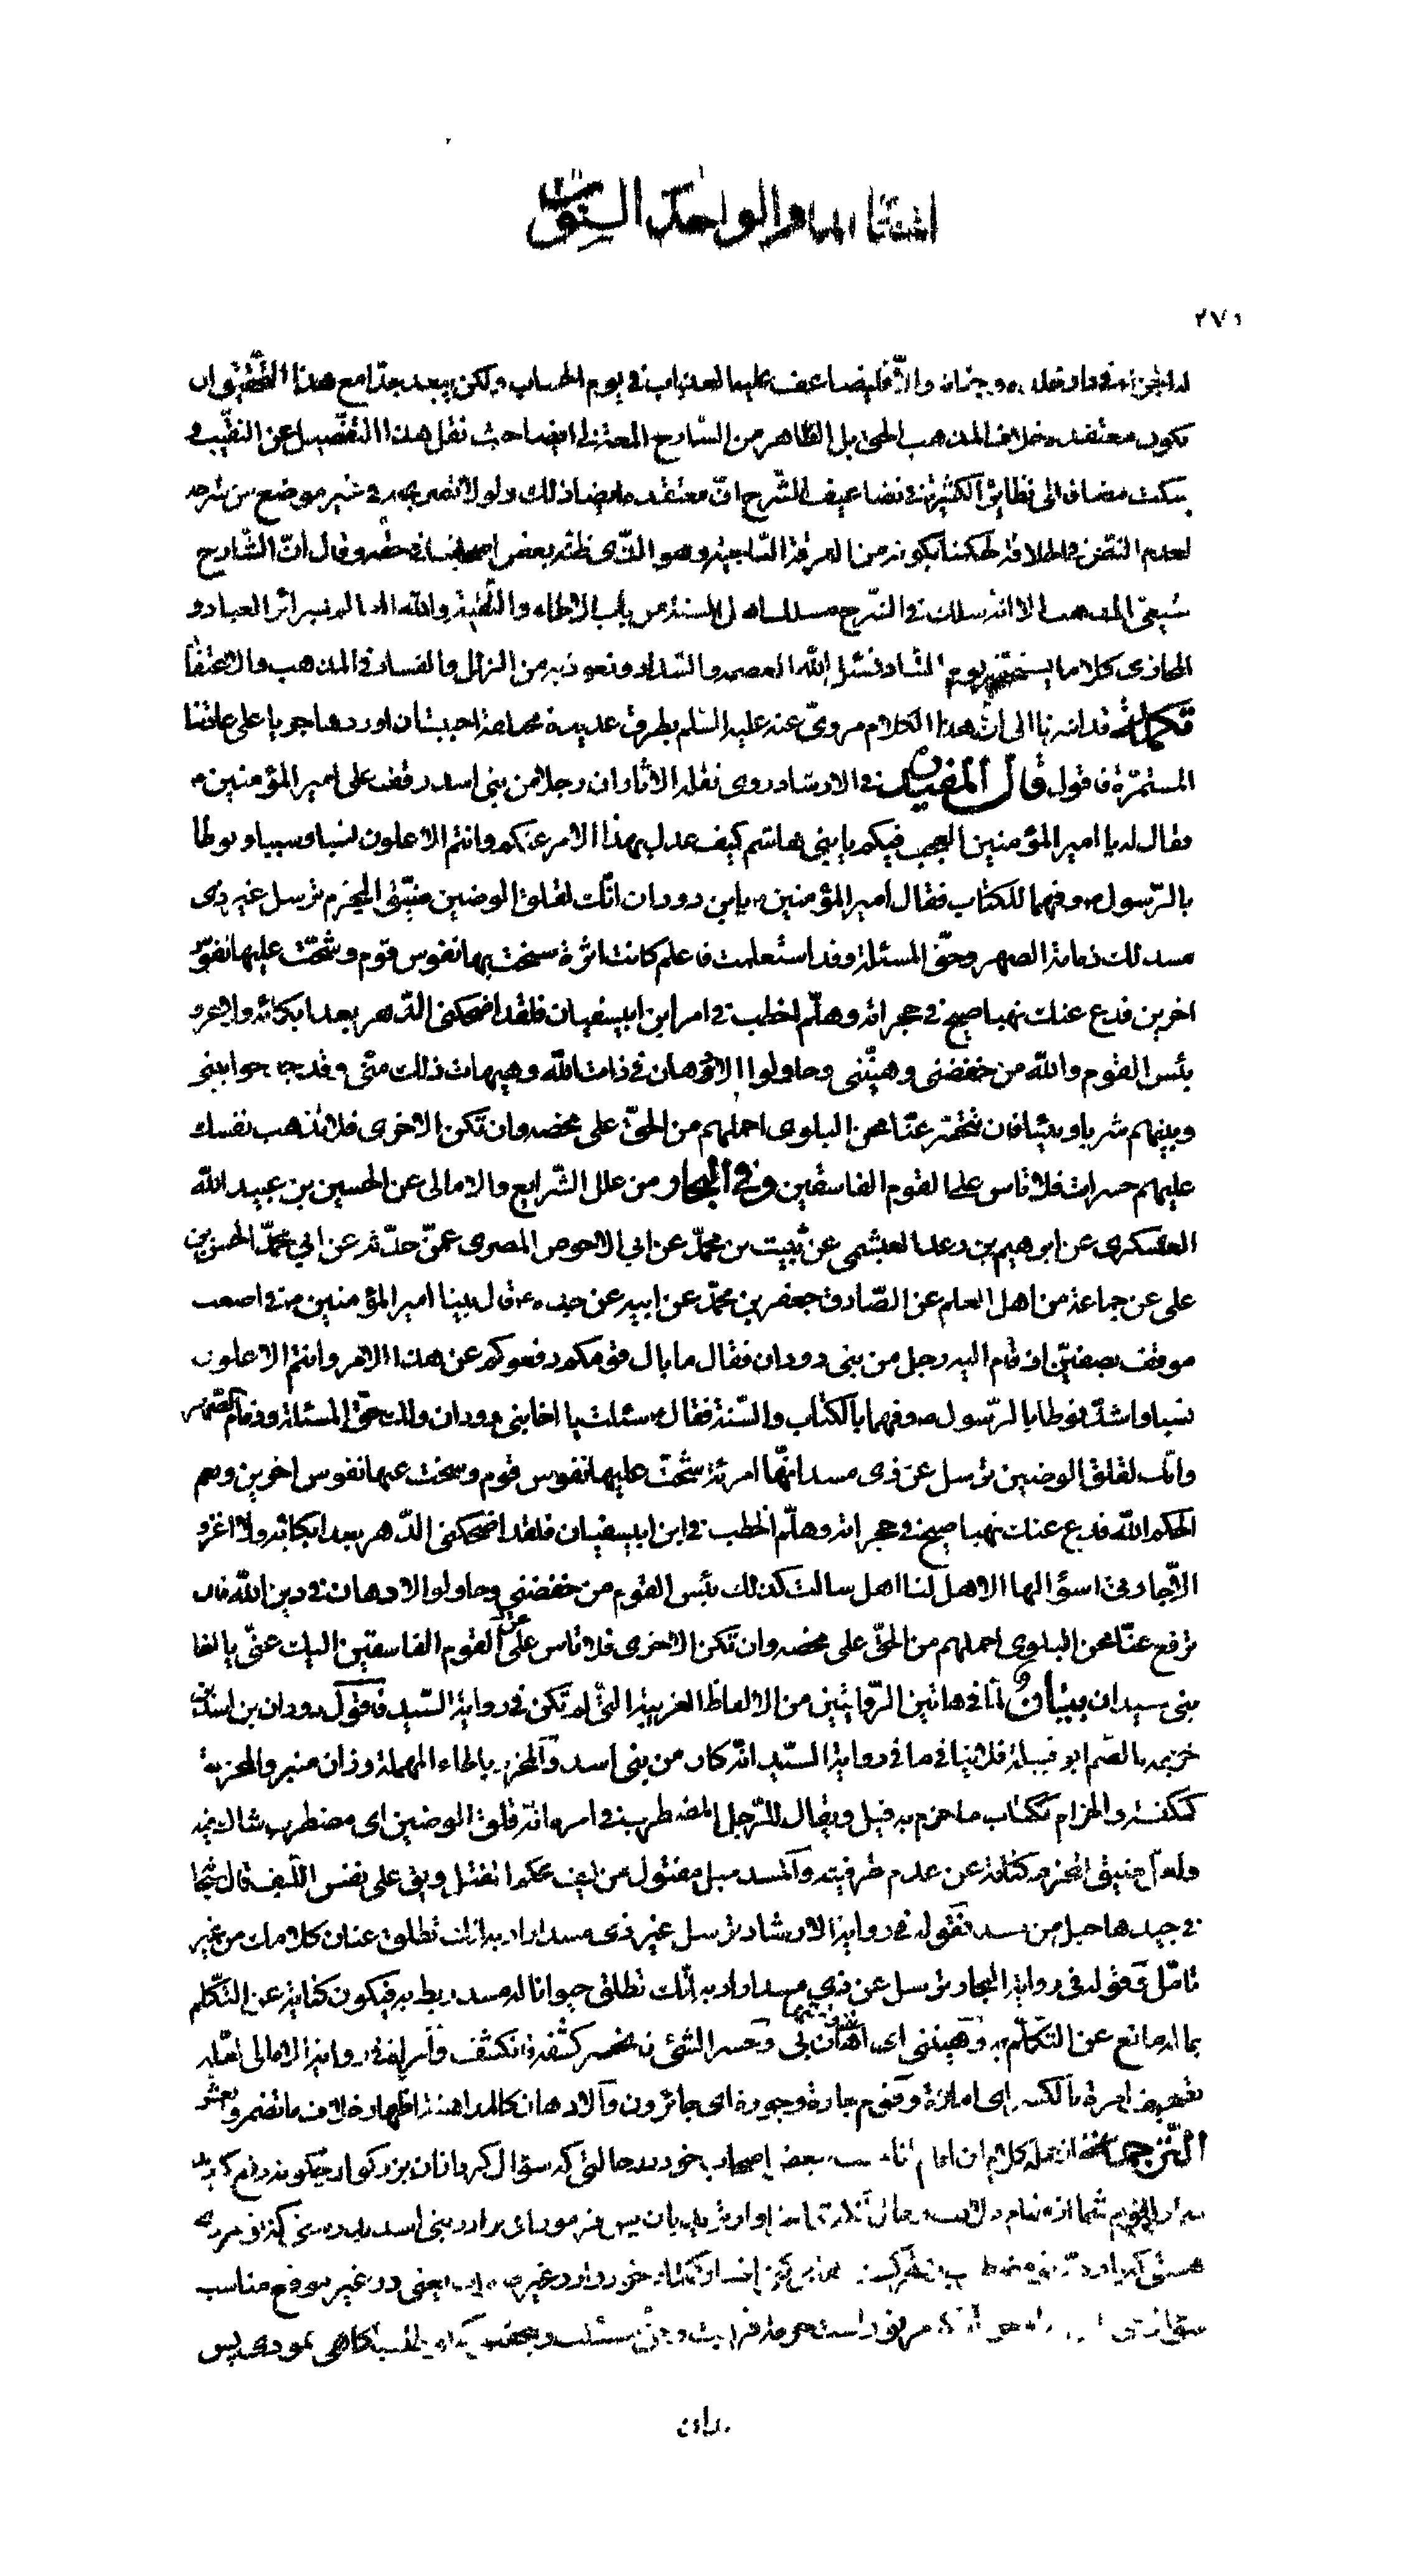 المائة والواحد الستون
٢٧١
والا فليضاعف عليه العذاب في يوم الحساب ولكن يبعد جدا مع هذا التحقيق ان
يكون معتقده خلاف المذهب الحق بل الظاهر من الشارح المعتزلي ايضا حيث نقل هذا التفصيل عن النقيب و
سكت مضافا الى نظايره الكثيرة في تضاعيف الشرح ان معتقده ايضا ذلك ولولا تصريحه في غير موضع من شرحه
لعدم النص في لحكمنا بكونه من الفرقة الناجية وهو الذي ظنه بعض اصحابنا في حقه وقال ان الشارح
شيعي المذهب الا انه سلك في الشرح مسلك اهل السنة من باب والتقية والله العالم بسرائر العباد و
المجازى كلا ما يستحقه يوم التناد نسئل الله العصمة والسداد ونعوذ به من الزلل والفساد في المذهب والاعتقاد
تكملة قد اشرنا الى ان هذا الكلام مروى عنه عليه السلم بطرق عديدة احببنا ان اوردها جريا على عادتنا
المستمرة فاقول قال المفيد في الارشاد روى نقلة الاثار ان رجلا من بنى اسد وقف على امير المؤمنين ع
فقال له يا امير المؤمنين العجب فيكم يا بنى هاشم كيف عدل بهذا الامر عنكم وانتم الاعلون نسبا وسببا ونوطا
بالرسول ص وفهما للكتاب فقال امير المؤمنين ع يا بن دودان انك لقلق الوضين ضيق المخزم ترسل غير ذى
مسد لك ذمامة الصهر وحق المسئلة وقد استعلمت فاعلم كانت اثرة سخت بها نفوس قوم وشحت عليها نفوس
اخرين فدع عنك نهبا صيح في حجراته وهلم الخطب في امر ابن ابيسفيان فلقد اضحكنى الدهر بعد ابكائه ولا غرو
بئس القوم والله من خفضنى وهيننى وحاولوا الادهان في ذات الله وهيهات ذلك منى وقد جدحوا بينى
وبينهم شربا وبيئا فان تنحسر عنا محن البلوى احملهم من الحق على محضه وان تكن الاخرى فلا تذهب نفسك
عليهم حسرات فلا تاس على القوم الفاسقين وفي البحار من علل الشرايع والامالى عن الحسين بن عبيد الله
العسكرى عن ابرهيم بن رعد العبشمى عن ثبيت بن محمد عن ابى الاحوص المصرى عمن حدثه عن ابى محمد الحسن بن
على عن جماعة من اهل العلم عن الصادق جعفر بن محمد عن ابيه عن جده ع قال بينا امير المؤمنين ع في اصعب
موقف بصفين اذ قام اليه رجل من بنى دودان فقال ما بال قومكم دفعوكم عن هذا الامر وانتم الاعلون
نسبا واشد نوطا بالرسول ص وفهما بالكتاب والسنة فقال ع سئلت يا اخا بنى دودان ولك حق المسئلة وذمام الصهر
وانك لقلق الوضين ترسل عن ذى مسد انها امرة شحت عليها نفوس قوم وسخت عنها نفوس اخرين ونعم
الحكم الله فدع عنك نهبا صيح في حجراته وهلم الخطب في ابن ابيسفيان فلقد اضحكنى الدهر بعد ابكائه ولا غرو
الا جارتى وسؤالها الا هل لنا اهل سالت كذلك بئس القوم من خفضنى وحاولوا الادهان في دين الله فان
ترفع عنا محن البلوى احملهم من الحق على محضه وان تكن الاخرى فلا تاس على القوم الفاسقين اليك عنى يا اخا
بنى سيدان بيان ما في هاتين الروايتين من الالفاظ الغريبة التى لم تكن في رواية السيد فاقول دودان بن اسد بن
خزيمة بالضم ابو قبيلة فلا ينافى ما في رواية السيد انه كان من بنى اسد والمحزم بالحاء المهملة وزان منبر والمحزمة
كمكنسة والحزام ككتاب ما حزم به قيل ويقال للرجل المضطرب في امره انه قلق الوضين اى مضطرب شاك فيه
ولعل ضيق المخزم كناية عن عدم ظرفيته والمسد حبل مفتول من ليف محكم الفتل ويق على نفس الليف قال تعالى
في جيدها حبل من مسد فقوله في رواية الارشاد ترسل غير ذى مسد اراد به انك تطلق عنان كلامك من غير
تامل وقوله في رواية البحار ترسل عن ذى مسد اراد به انك تطلق حيوانا له مسد ربط به فيكون كناية عن التكلم
بما له مانع عن التكلم به وهيننى اى اهان بى وحسر الشئ فانحسر كشفه فانكشف وامرة في رواية الامالى لعله
تصحيف اثرة بالكسر اى امارة وقوم جارة وجورة اى جائرون والادهان كالمداهنة اظهار خلاف ما تضمر والغش
الترجمة از جمله كلام ان امام انام است ببعض اصحاب خود در حالتى كه سؤال كرد از ان بزركوار چكونه دفع كردند
شما را قوم شما از اين مقام پس فرمود اى برادر بنى اسد بدرستى كه تو مردى
هستى كه در غير موقع مناسب
پس
بدان